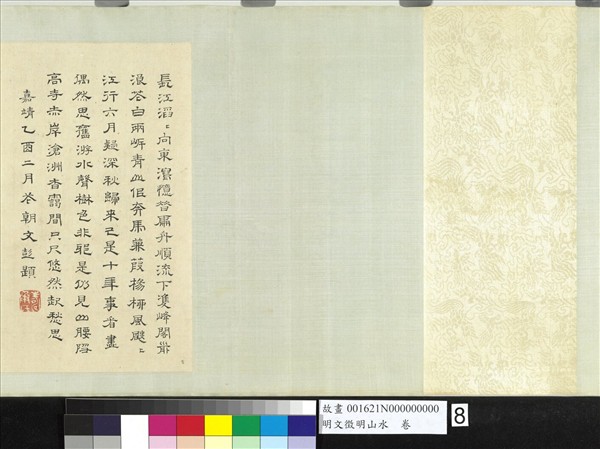 長江滔〻向東瀉憶昔扁舟順流下雙峰閣前
浪花白兩岸青山但奔馬蒹葭楊柳風颼〻
江行六月疑深秋歸來已是十年事看畫
偶然思舊游水聲樹色非耶是仍見山腰隱
高寺赤岸滄洲香靄間只尺悠然起愁思
嘉靖乙酉二月花朝文彭題
故畫 001621N000000000
明文徵明山水 卷
8